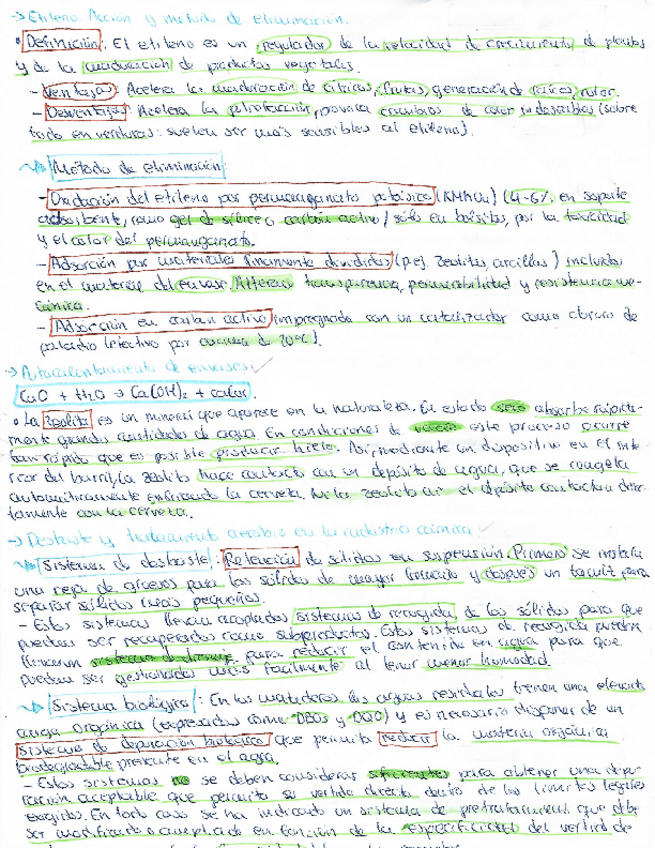 → Etileno. Acción y método de eliminación.
• Definición: El etileno es un regulador de la velocidad de crecimiento de plantas
y de la maduración de productos vegetales.
- Ventajas: Acelera la maduración de cítricos, frutas, generación de raíces, color.
- Desventajas: Acelera la putrefacción, provoca cambios de color indeseables (sobre
todo en verduras: suelen ser más sensibles al etileno).
Método de eliminación:
- Oxidación del etileno por permanganato potásico (KMnO4) (4-6% en soporte
adsorbente, como gel de sílice o carbón activo / sólo en bolsitas, por la toxicidad
y el color del permanganato.
- Adsorción por materiales finamente divididos (p.ej. zeolitas, arcillas) incluidos
en el material del envase. Alteran transparencia, permeabilidad y resistencia me-
cánica.
- Adsorción en carbón activo impregnado con un catalizador como cloruro de
paladio (efectivo por encima de 20ºC).
→ Autocalentamiento de envases.
CaO + H2O → Ca(OH)2 + calor.
• La zeolita es un mineral que aparece en la naturaleza. En estado seco absorbe rápida-
mente grandes cantidades de agua. En condiciones de vacío este proceso ocurre
tan rápido que es posible producir hielo. Así, mediante un dispositivo en el inte
rior del barril, la zeolita hace contacto con un depósito de agua, que se congela
automáticamente enfriando la cerveza. Ni la zeolita ni el depósito contactan direc-
tamente con la cerveza.
→ Desbaste y tratamiento aerobio en la industria cárnica
Sistema de desbaste: Retención de sólidos en suspensión. Primero se instala
una reja de gruesos para los sólidos de mayor tamaño y después un tamiz para
separar sólidos más pequeños.
- Estos sistemas llevan acoplados sistemas de recogida de los sólidos para que
puedan ser recuperados como subproductos. Estos sistemas de recogida pueden
llevar un sistema de drenaje para reducir el contenido en agua para que
puedan ser gestionados más fácilmente al tener menor humedad.
Sistema biológico: En los mataderos las aguas residuales tienen una elevada
carga orgánica (expresadas como DBO5 y DQO) y es necesario disponer de un
sistema de depuración biológico que permita reducir la materia orgánica
biodegradable presente en el agua.
- Estos sistemas no se deben considerar suficientes para obtener una depu-
ración aceptable que permita su vertido directo dentro de los límites legales
exigidos. En todo caso se ha indicado un sistema de pretratamiento que debe
ser modificado o ampliado en función de la especificidad del vertido de